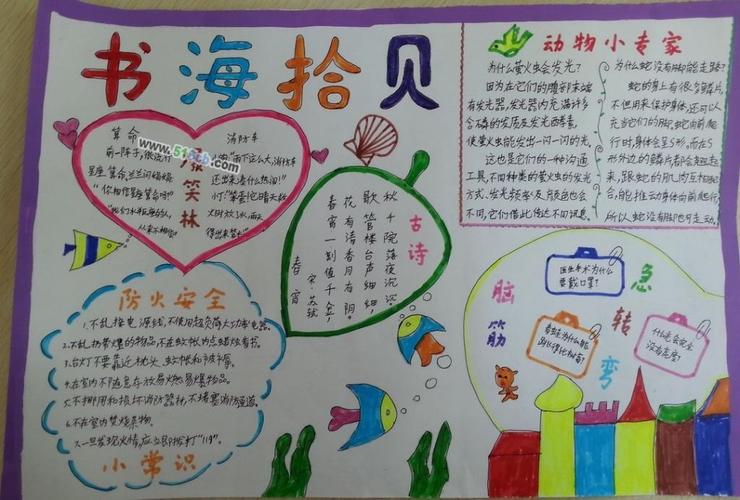 书海拾贝
算命
前一阵子,很流行
星座算命,兰问萌萌
"你相信星座算命吗?"
爆笑林
消防车
还出来凑什么热闹!"
www.51
动物小专家
为什么萤火虫会发光?
因为在它们的腹部末端
有发光器,发光器内充满许多
含磷的发质及发光酵素,
使萤火虫能发出一闪一闪的光,
这也是它们的一种沟通
工具,不同种类的萤火虫的发光
方式、发光频率及颜色也会
不同,它们借此传达不同讯息.
为什么蛇没有脚能走路?
蛇的身上有很多鳞片,
不但用来保护身体,还可以
充当它们的脚,蛇向前爬
行时,身体会呈S形,而在S
形外边的鳞片都会翘起
来,跟蛇的肌肉互相配
合,能推动身体向前爬行,
所以蛇没有脚也可走动.
古诗
春宵
宋·苏轼
春宵一刻值千金,
花有清香月有阴.
歌管楼台声细细,
秋千院落夜沉沉.
防火安全
1.不乱接电源线,不使用超负荷大功率电器.
2.不乱扔带爆的物品,不在蚊帐内点蜡烛看书.
3.台灯不要靠近枕头、蚊帐和被褥.
4.在室内不随意存放易燃易爆物品.
5.不挪用和损坏消防器材,不堵塞消防通道.
6.不在室内焚烧杂物.
7.一旦发现火情,应立即拨打"119".
小常识
脑筋急转弯
医生手术为什么
要戴口罩?
什么老公安
没有危险?